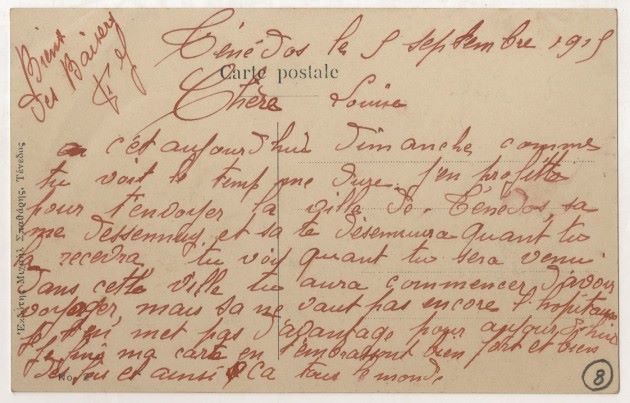 Bient
des Baisers
Ténédos le 5 septembre 1915
Carte postale
Chère Louise
c'et aujourdhui dimanche comme
tu voit le temp me dure. j'en profitte
pour t'envoyer la ville de Ténédos, sa
me dessennuis et sa te désennuira quant tu
la recevra tu voit quant tu sera venu
dans cette ville tu aura commencer d'avoir
voyager, mais sa ne vaut pas encore l'hopital
Je t'en met pas d'avantage pour aujourdhui
Je fini ma carte en t'embrassant bien fort et bien
des fois et ainsi ça tous le monde
Ἐκδότης Μιχαὴλ Σπαθάρης, Τένεδος
No.
8